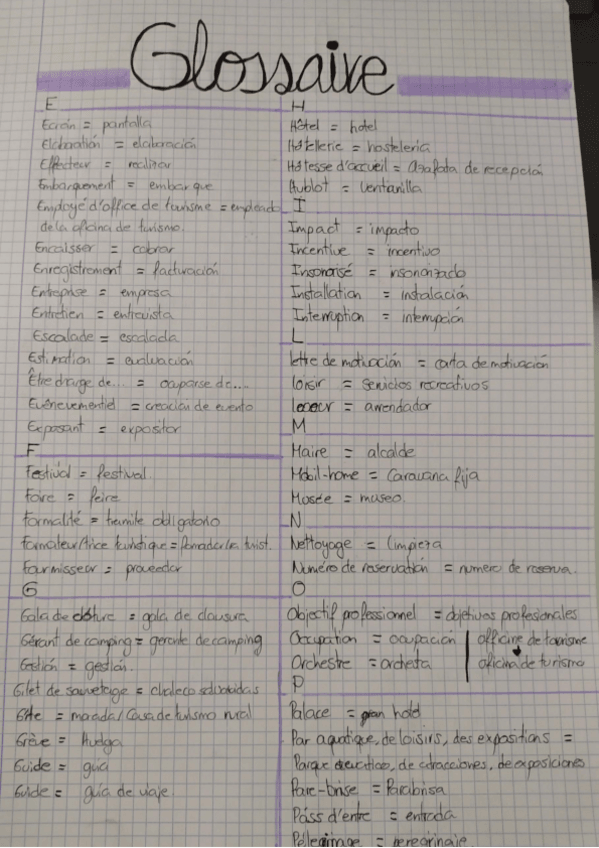 Glossaire
E
Ecran = pantalla
Elaboration = elaboración
Effecteur = realizar
Embarquement = embarque
Employé d'office de tourisme = empleado
de la oficina de turismo.
Encaisser = cobrar
Enregistrement = facturación
Entreprise = empresa
Entretien = entrevista
Escalade = escalada
Estimation = evaluación
Être charge de... = ocuparse de...
Evènevementiel = creacion de evento
Exposant = expositor
F
Festival = festival.
Foire = feire
Formalité = tramite obligatorio
Formateur/trice touristique = formador/ra turist.
Fournisseur = proveedor
G
Gala de clôture = gala de clausura
Gérant de camping = gerente de camping
Gestión = gestión.
Gilet de sauvetage = chaleco salvavidas
Gîte = morada/Casa de turismo rural
Grève = Huelga
Guide = guía
Guide = guía de viaje.
H
Hôtel = hotel
Hôtellerie = hosteleria
Hôtesse d'accueil = Azafata de recepción
Hublot = ventanilla
I
Impact = impacto
Incentive = incentivo
Insonorisé = insonorizado
Installation = instalación
Interruption = interrupción
L
lettre de motivación = carta de motivación
loisir = servicios recreativos
loueur = arrendador
M
Maire = alcalde
Mobil-home = Caravana fija
Musée = museo.
N
Nettoyage = limpieza
Numéro de reservation = numero de reserva.
O
Objectif professionnel = objetivos profesionales
Occupation = ocupación | officine de tourisme
Orchestre = orchesta | oficina de turismo
P
Palace = gran hotel
Par aquatique, de loisirs, des expositions =
Parque acuatico, de atracciones, de exposiciones
Pare-brise = Parabrisa
Pass d'entre = entrada
Pélegrinage = peregrinaje